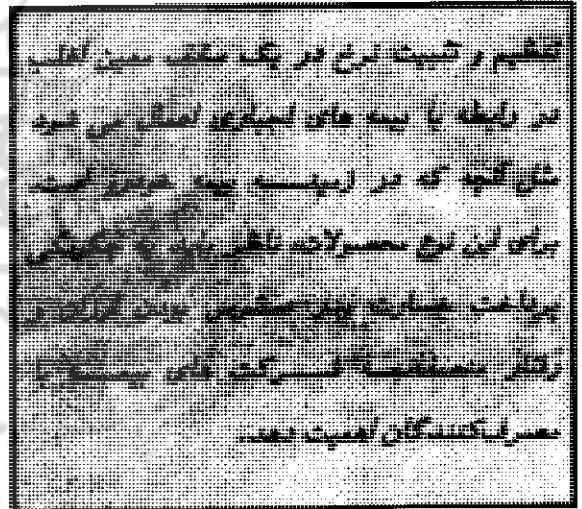 تنظیم و تثبیت نرخ در یک سقف معین اغلب
در رابطه با بیمه های اجباری اعمال می شود
مثل آنچه که در زمینه بیمه خودرو است.
برای این نوع محصولات، ناظر باید به چگونگی
پرداخت خسارت، بودن قرارداد و
رفتار منصفانه شرکت های بیمه با
مصرف‌کنندگان اهمیت دهد.